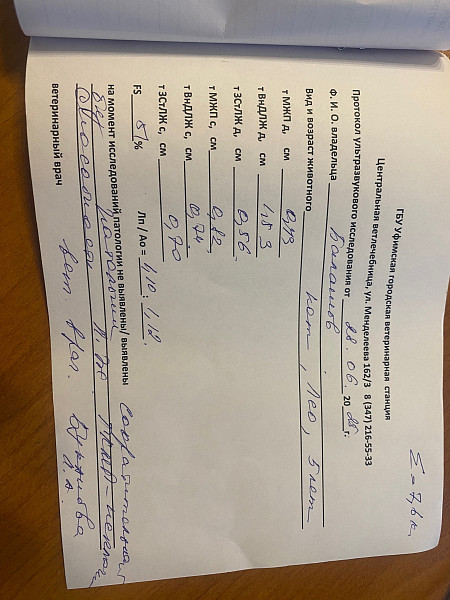 Σ = 7,6 кг
ГБУ Уфимская городская ветеринарная станция
Центральная ветлечебница, ул. Менделеева 162/3 8 (347) 216-55-33
Протокол ультразвукового исследования от 28. 06. 20 25г.
Ф. И. О. владельца Балашов
Вид и возраст животного кот, Лео, 5 лет
т МЖП д, см 0,43
т ВнДЛЖ д, см 1,53
т ЗСтЛЖ д, см 0,56
т МЖП с, см 0,82
т ВнДЛЖ с, см 0,74
т ЗСтЛЖ с, см 0,70
FS 51% Лп / Ао = 1,10 : 1,18.
на момент исследований патологии не выявлены/ выявлены Сократительная
способность
ветеринарный врач вет. врач.